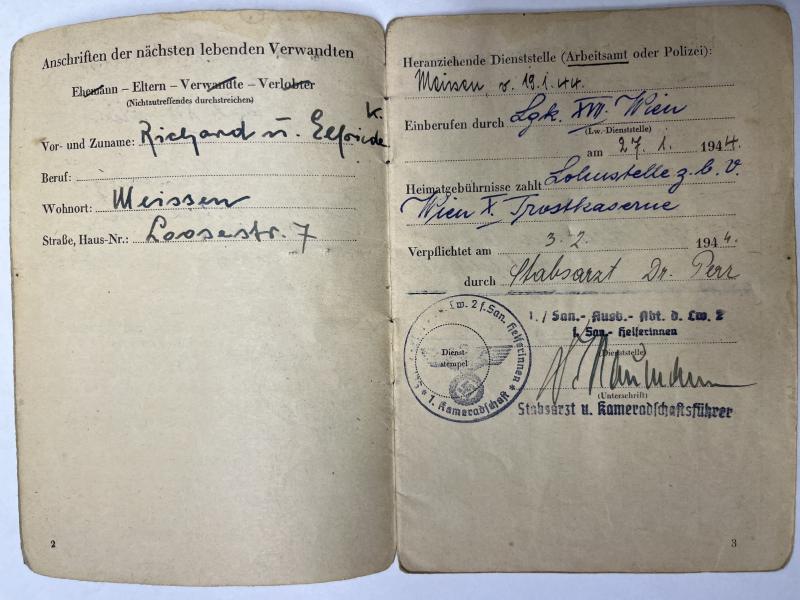 Anschriften der nächsten lebenden Verwandten
Ehemann – Eltern – Verwandte – Verlobter
(Nichtzutreffendes durchstreichen)
Vor- und Zuname: Richard u. Elfriede K.
Beruf:
Wohnort: Meissen
Straße, Haus-Nr.: Loosestr. 7
2
Heranziehende Dienststelle (Arbeitsamt oder Polizei):
Meissen, v. 19.1.44.
Einberufen durch Lgk. XVII Wien
(Lw.-Dienststelle)
am 27.1. 1944.
Heimatgebührnisse zahlt Lohnstelle z.b.V.
Wien X. Trostkaserne
Verpflichtet am 3.2. 1944.
durch Stabsarzt Dr. Perr
Lw. 2 f. San. Helferinnen
* 1. Kameradschaft *
Dienst-
stempel
1./ San.- Ausb.- Abt. d. Lw. 2
f. San.- Helferinnen
(Dienststelle)
(Unterschrift)
Stabsarzt u. Kameradschaftsführer
3